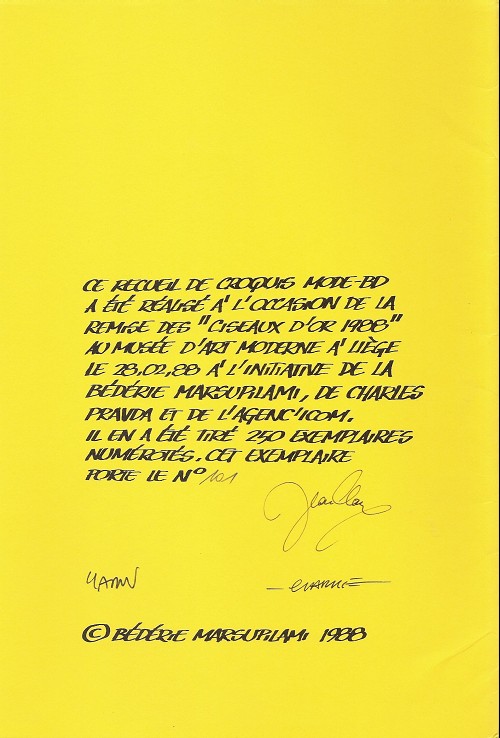 CE RECUEIL DE CROQUIS MODE-BD
A ÉTÉ RÉALISÉ A' L'OCCASION DE LA
REMISE DES "CISEAUX D'OR 1988"
AU MUSÉE D'ART MODERNE A' LIÈGE
LE 28.02.88 A' L'INITIATIVE DE LA
BÉDÉRIE MARSUPILAMI, DE CHARLES
PRAVDA ET DE L'AGENC'ICOM.
IL EN A ÉTÉ TIRÉ 250 EXEMPLAIRES
NUMÉROTÉS. CET EXEMPLAIRE
PORTE LE N° 101
© BÉDÉRIE MARSUPILAMI 1988